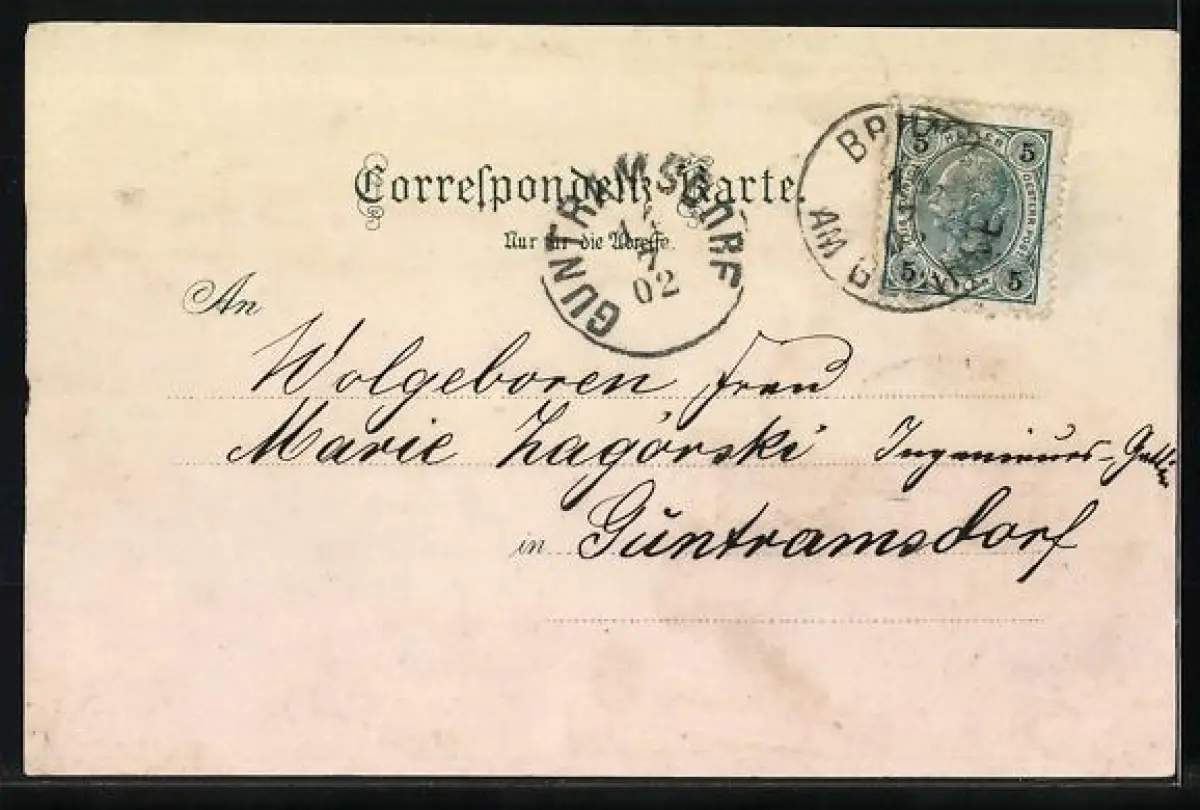 Correspondenz-Karte.
Nur für die Adresse.
GUNTRAMSDORF
7
02
BRUNN
AM GEBIRGE
5 HELLER 5
5 5
An
Wolgeboren Frau
Marie Zagórski Ingenieurs-Gattin
in Guntramsdorf